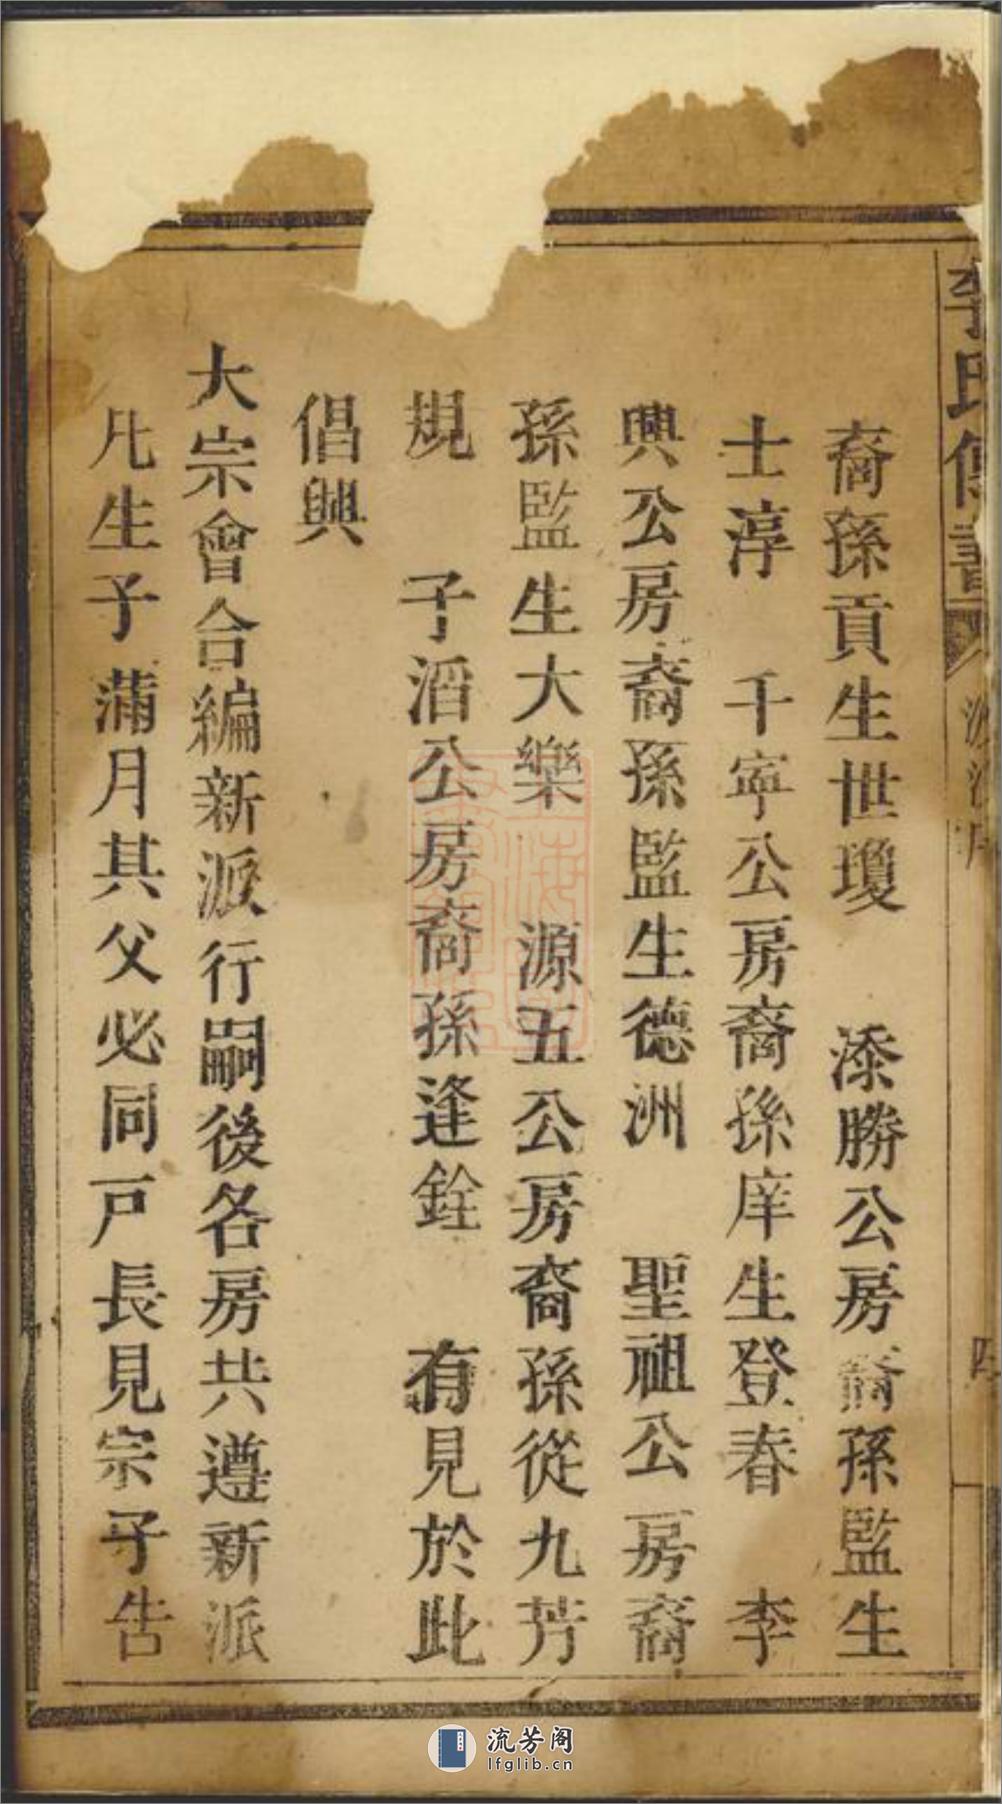 李氏傳書
裔孫貢生世瓊　添勝公房裔孫監生
士淳　千寧公房裔孫庠生登春　李
興公房裔孫監生德洲　聖祖公房裔
孫監生大樂　源五公房裔孫從九芳
規　子滔公房裔孫逢銓　有見於此
倡興
大宗會合編新派行嗣後各房共遵新派
凡生子滿月其父必同戶長見宗子告
流芳阁
lfglib.cn